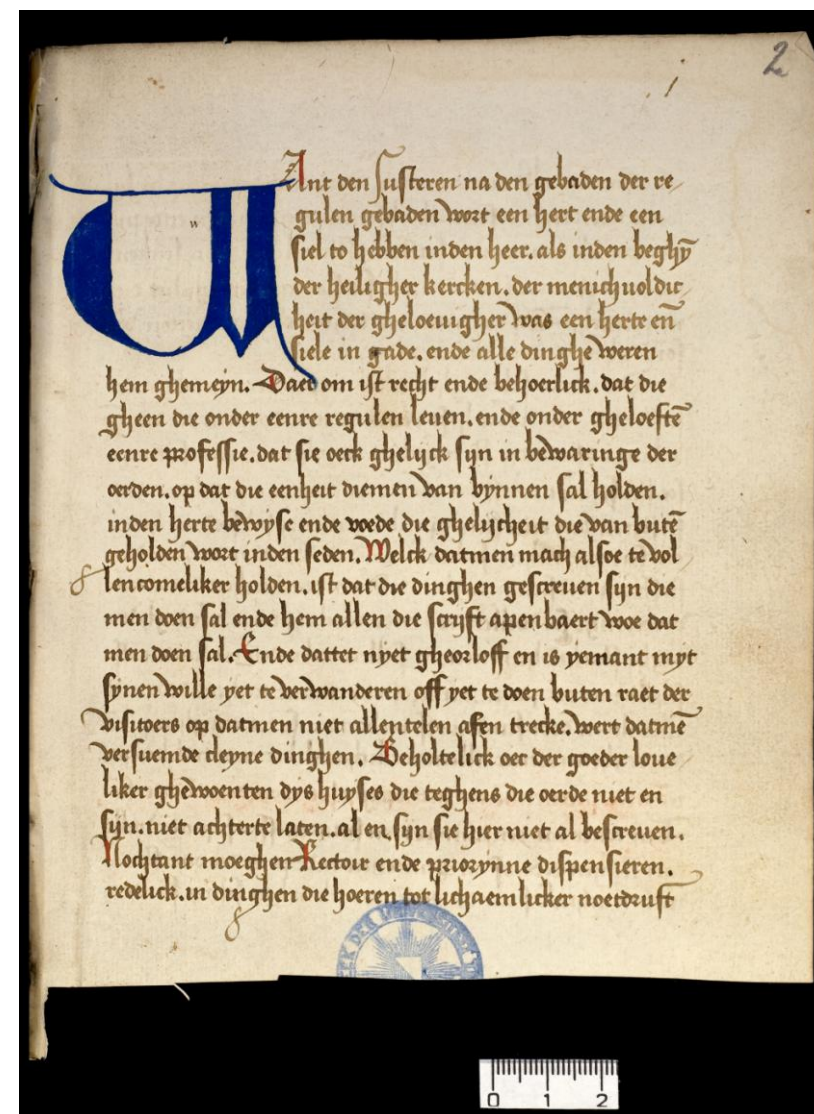 2
i
WAnt den susteren na den gebaden der re
gulen gebaden wort een hert ende een
siel to hebben inden heer. als inden beghȳ
der heiligher kercken. der menichuoldic
heit der gheloeuigher was een herte en̄
siele in gade. ende alle dinghe weren
hem ghemeyn. Daer om ist recht ende behoerlick. dat die
gheen die onder eenre regulen leuen. ende onder gheloeftē
eenre professie. dat sie oeck ghelijck sijn in bewaringe der
oerden. op dat die eenheit diemen van bynnen sal holden.
inden herte bewyse ende voede die ghelijcheit die van butē
geholden wort inden seden. Welck datmen mach alsoe te vol
lencomeliker holden. ist dat die dinghen gescreuen sijn die
men doen sal ende hem allen die scrijft apenbaert woe dat
men doen sal. Ende dattet nyet gheorloff en is yemant myt
synen wille yet te verwanderen off yet te doen buten raet der
visitoers op datmen niet allentelen afen trecke. wert datmē
versuemde cleyne dinghen. Beholtelick oer der goeder loue
liker ghewoenten dys huyses die teghens die oerde niet en
sijn. niet achterte laten. al en sijn sie hier niet al bescreuen.
Nochtant moeghen Rectoir ende priorynne dispensieren.
redelick. in dinghen die hoeren tot lichaemlicker noetdruft
EEK DER
0 1 2